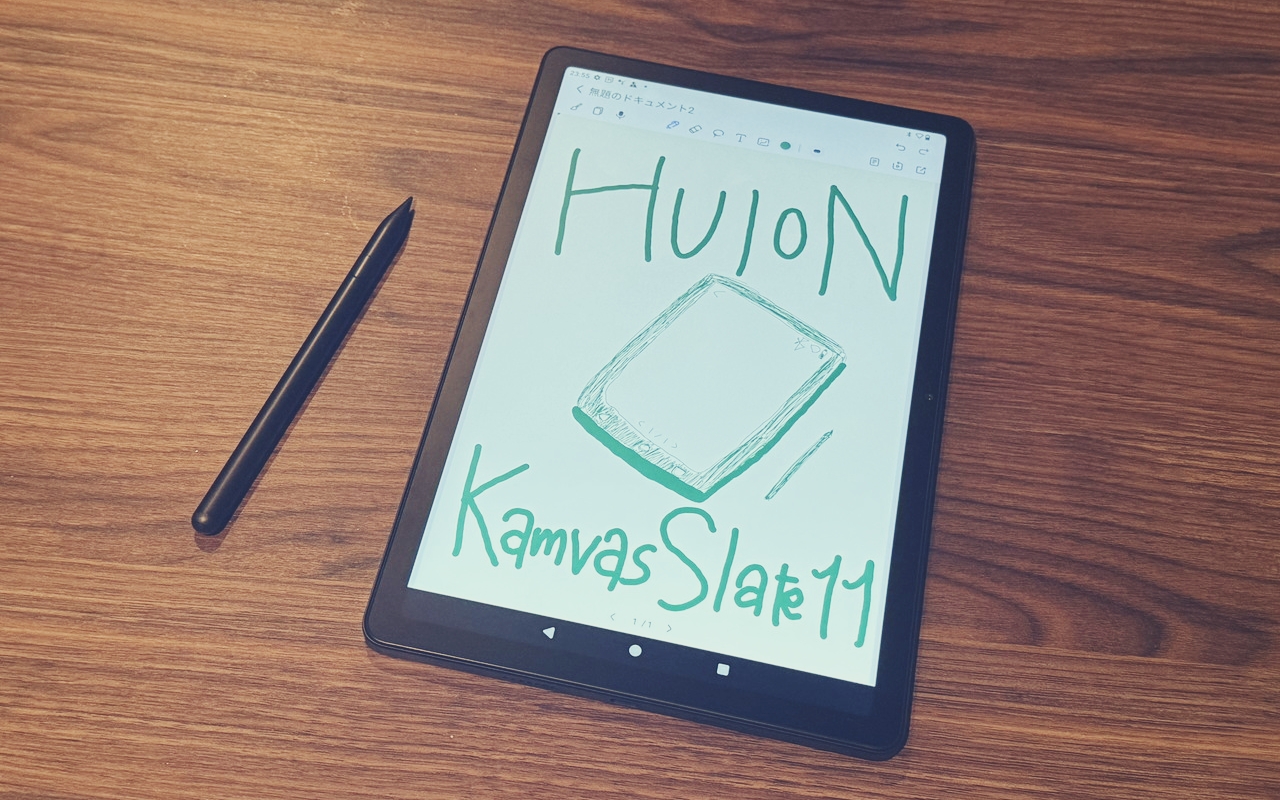 23:53
無題のドキュメント2
T
HUION
Kamvas Slate 11
1/1